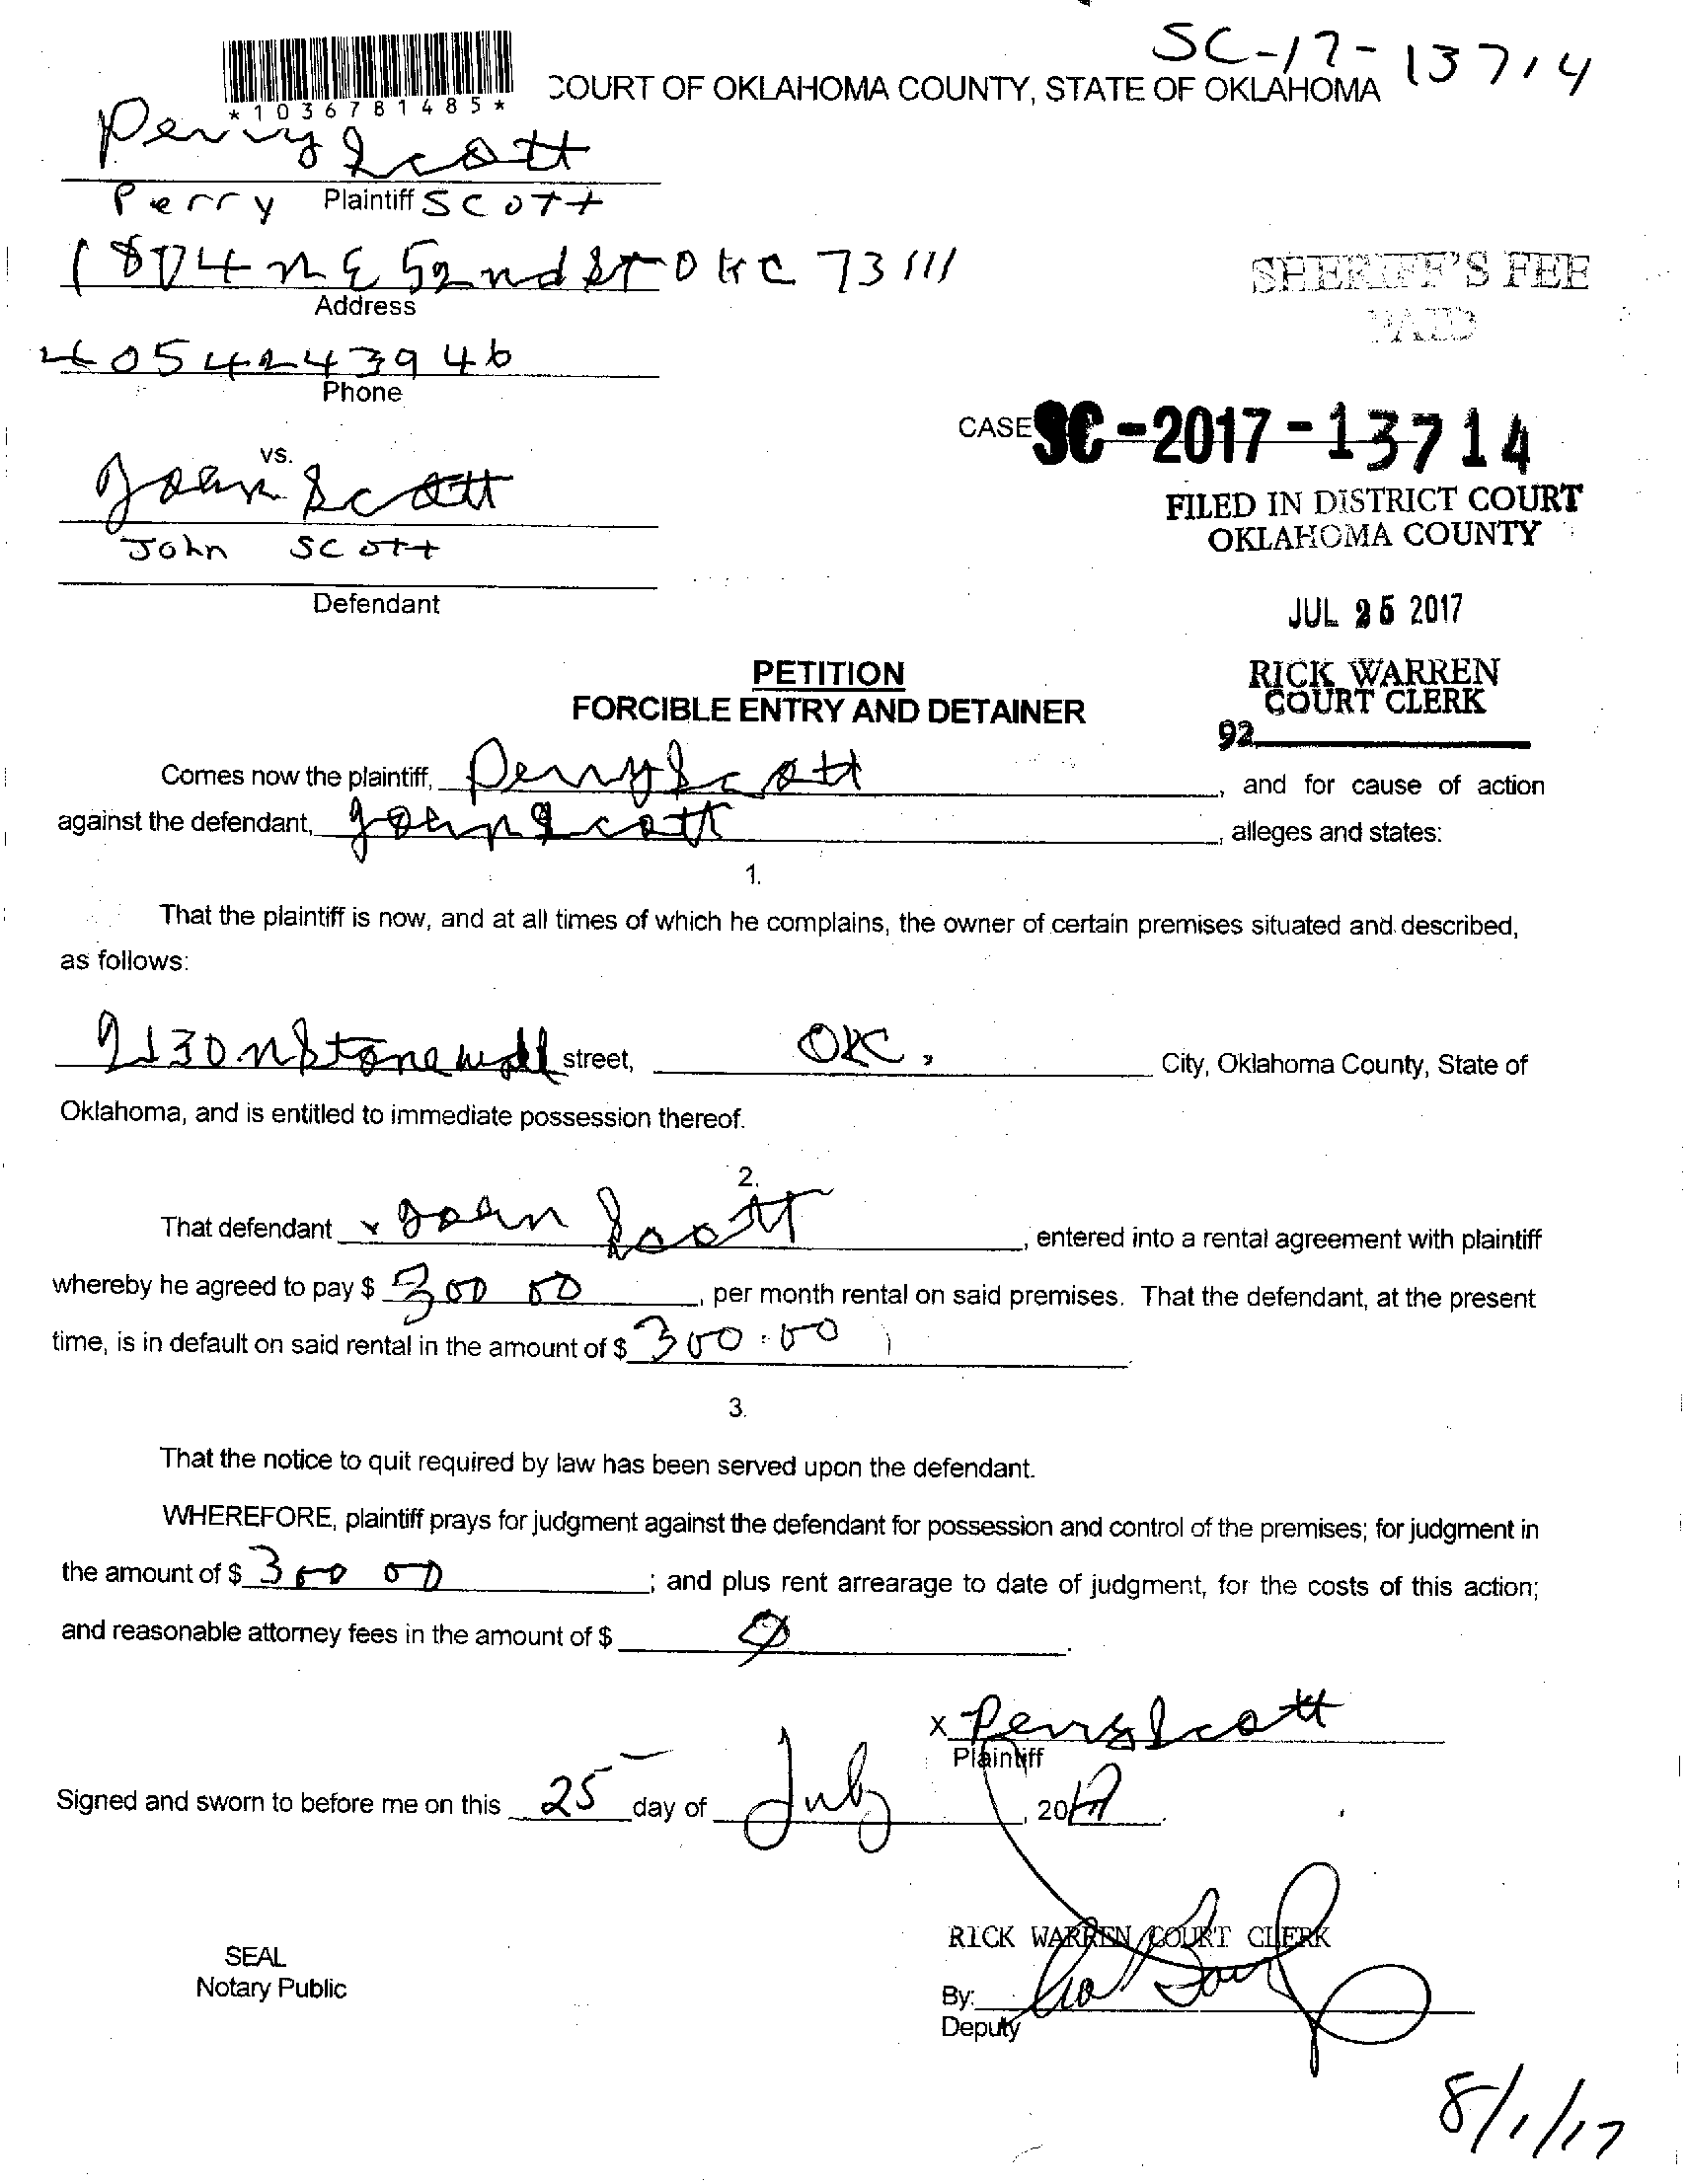 SC-17-13714
*1036781485*
COURT OF OKLAHOMA COUNTY, STATE OF OKLAHOMA
Perry Scott
Perry Plaintiff Scott
1804 NE 52nd ST OKC 73111
Address
SHERIFF'S FEE
PAID
4054243946
Phone
CASE SC-2017-13714
vs.
John Scott
FILED IN DISTRICT COURT
OKLAHOMA COUNTY
John Scott
Defendant
JUL 25 2017
RICK WARREN
COURT CLERK
92
PETITION
FORCIBLE ENTRY AND DETAINER
Comes now the plaintiff, Perry Scott, and for cause of action
against the defendant, John Scott, alleges and states:
1.
That the plaintiff is now, and at all times of which he complains, the owner of certain premises situated and described,
as follows:
2130 N Stonewall street, OKC, City, Oklahoma County, State of
Oklahoma, and is entitled to immediate possession thereof.
2.
That defendant x John Scott, entered into a rental agreement with plaintiff
whereby he agreed to pay $ 300 00, per month rental on said premises. That the defendant, at the present
time, is in default on said rental in the amount of $ 300.00
3.
That the notice to quit required by law has been served upon the defendant.
WHEREFORE, plaintiff prays for judgment against the defendant for possession and control of the premises; for judgment in
the amount of $ 300 00; and plus rent arrearage to date of judgment, for the costs of this action;
and reasonable attorney fees in the amount of $ 0.
x Perry Scott
Plaintiff
Signed and sworn to before me on this 25 day of July, 2017.
RICK WARREN COURT CLERK
SEAL
Notary Public
By:
Deputy
8/1/17